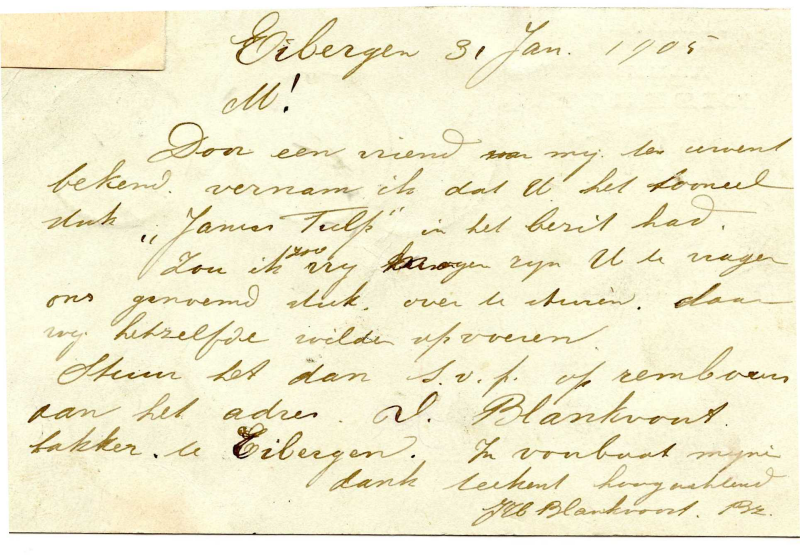 Eibergen 31 Jan. 1905
M!
Door een vriend van mij te uwent
bekend. vernam ik dat U het tooneel
stuk „Janus Tulp" in het bezit had.
Zou ik zoo vrij mogen zijn U te vragen
ons genoemd stuk. over te sturen. daar
wij hetzelfde wilden opvoeren.
Stuur het dan s.v.p. op rembours
aan het adres. D. Blankvoort.
bakker. te Eibergen. In voorbaat mijne
dank teekent hoogachtend
Blankvoort. Bz.